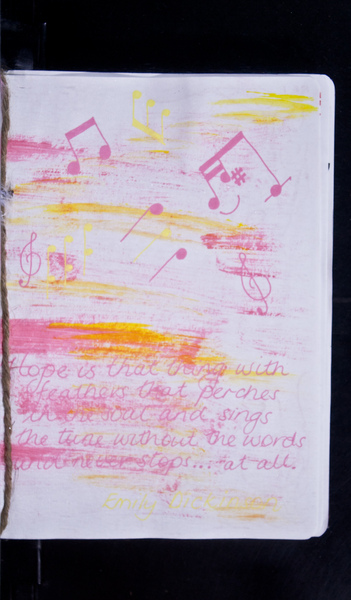 Hope is that thing with
feathers that perches
in the soul and sings
the tune without the words
and never stops... at all.
Emily Dickinson